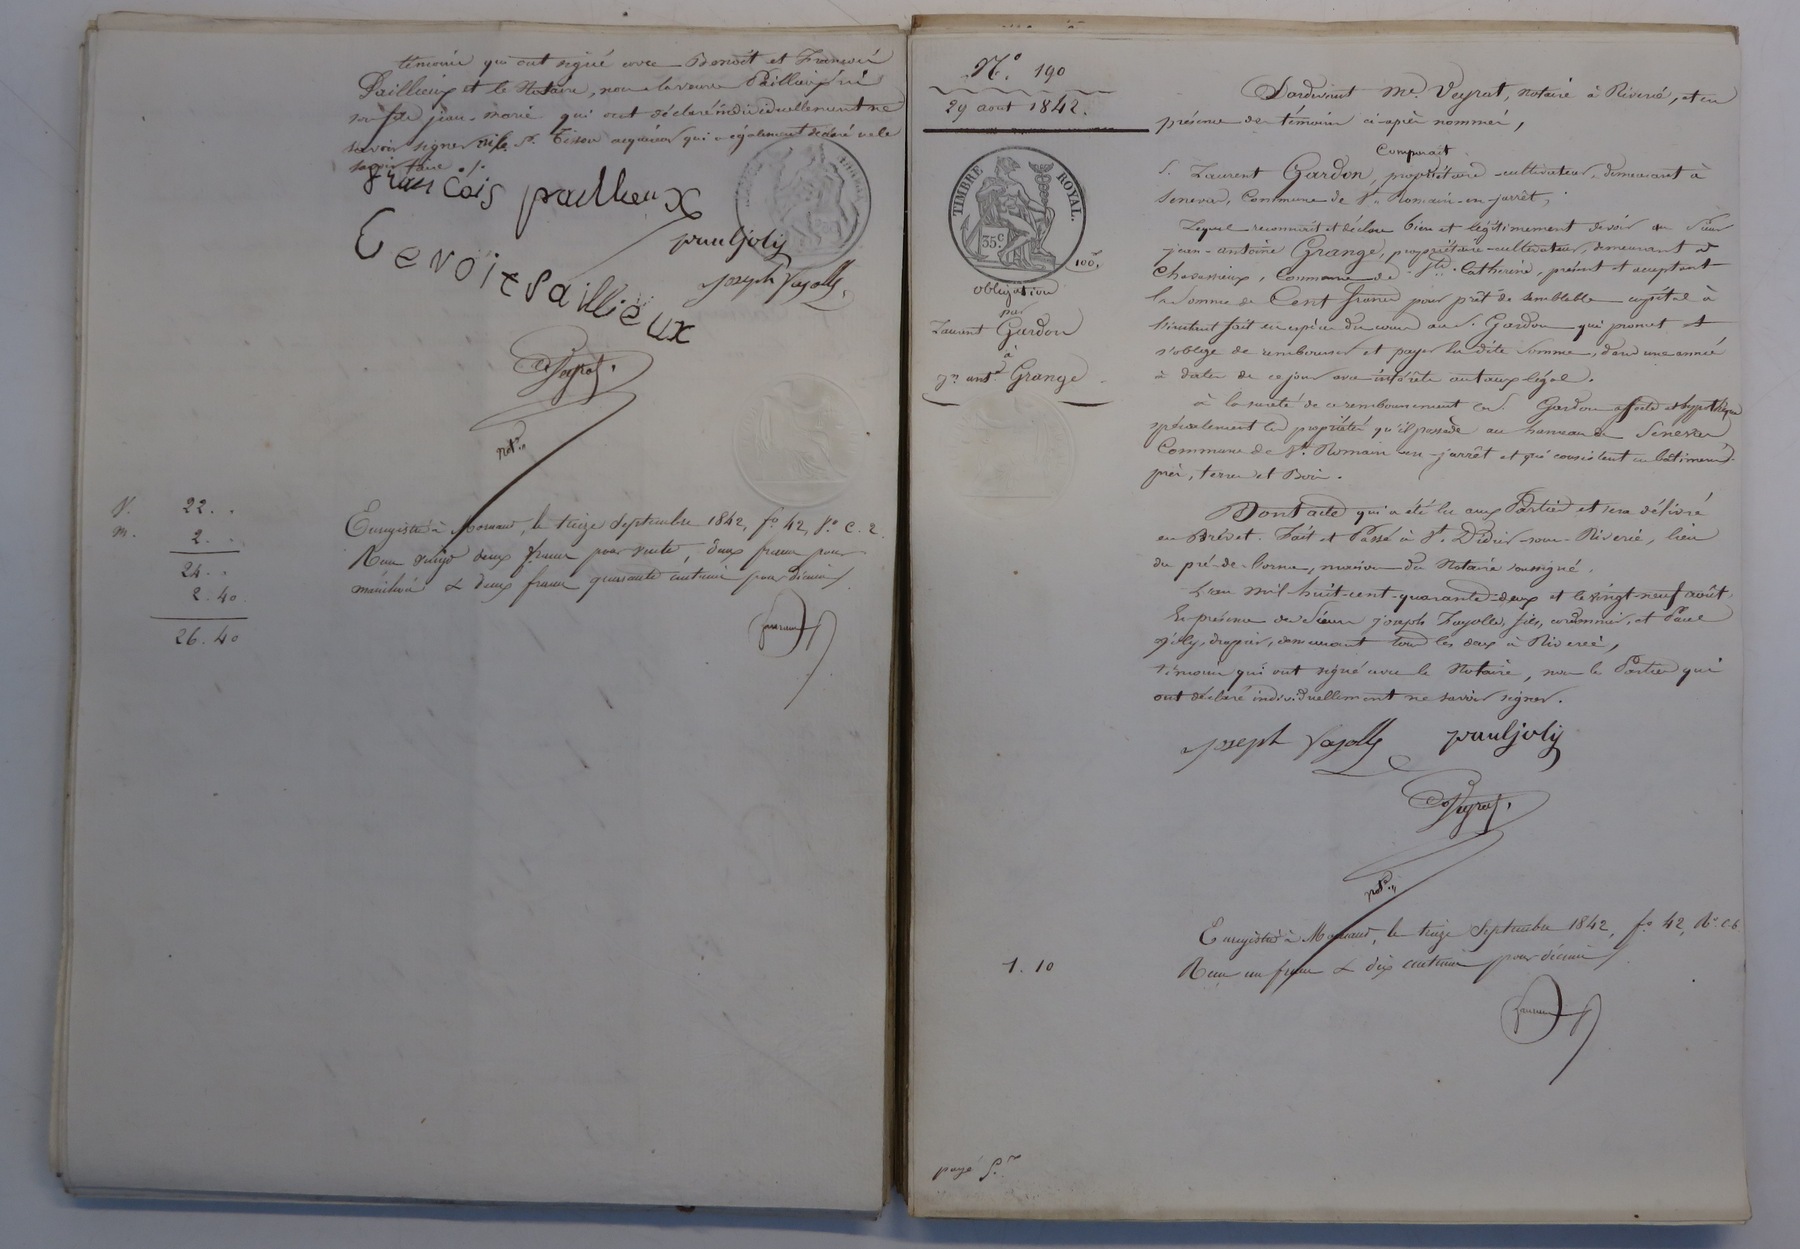 témoins qui ont signé avec Benoît et François
Paillieux et le Notaire, non la veuve Paillieux ni
son fils jean-marie qui ont déclaré individuellement ne
savoir signer ni le S. Tisson acquéreur qui a également déclaré ne le
savoir faire ./.
François paillieux
pauljoly
Benoit Paillieux
joseph Fayolle
Veyrat
not.re
V. 22 . .
m. 2 . .
24 . .
2 . 40
26 . 40
Enregistré à Mornant, le treize Septembre 1842, f.o 42, V.o C. 2.
Reçu vingt deux francs pour vente, deux francs pour
& deux francs quarante centimes pour décime
N.o 190
29 août 1842.
TIMBRE ROYAL.
35c
100f
obligation
par
Laurent Gardon
à
jn. ant.e Grange
Pardevant Me. Veyrat, notaire à Riverie, et en
présence des témoins ci-après nommés,
Comparait
S. Laurent Gardon, propriétaire-cultivateur, demeurant à
Senevas, Commune de St. Romain-en-jarrêt,
Lequel reconnait et déclare bien et légitimement devoir au Sieur
jean-antoine Grange, propriétaire-cultivateur, demeurant à
Chavassieux, Commune de Ste. Catherine, présent et acceptant
la Somme de Cent francs pour prêt de semblable capital à
l'instant fait en espèces du cours au S. Gardon qui promet et
s'oblige de rembourser et payer la dite Somme, dans une année
à dater de ce jour avec intérêts au taux légal.
à la sureté de ce remboursement le S. Gardon affecte et hypothèque
spécialement les propriétés qu'il possède au hameau de Senevas
Commune de St. Romain-en-jarrêt et qui consistent en bâtiments,
prés, terres et Bois.
Dont acte qui a été lu aux Parties et sera délivré
en Brévet. Fait et Passé à St. Didier-sous-Riverie, lieu
du pré-de-lorme, maison du Notaire soussigné.
L'an mil huit-cent-quarante-deux et le vingt-neuf août.
En présence des Sieurs joseph Fayolle, fils, cordonnier, et Paul
joly, drapier, demeurant tous les deux à Riverie,
témoins qui ont signé avec le Notaire, non les Parties qui
ont déclaré individuellement ne savoir signer.
joseph Fayolle pauljoly
Veyrat
not.re
1 . 10
Enregistré à Mornant, le treize Septembre 1842, f.o 42, R.o C. 6
Reçu un franc & dix centimes pour décime
payé